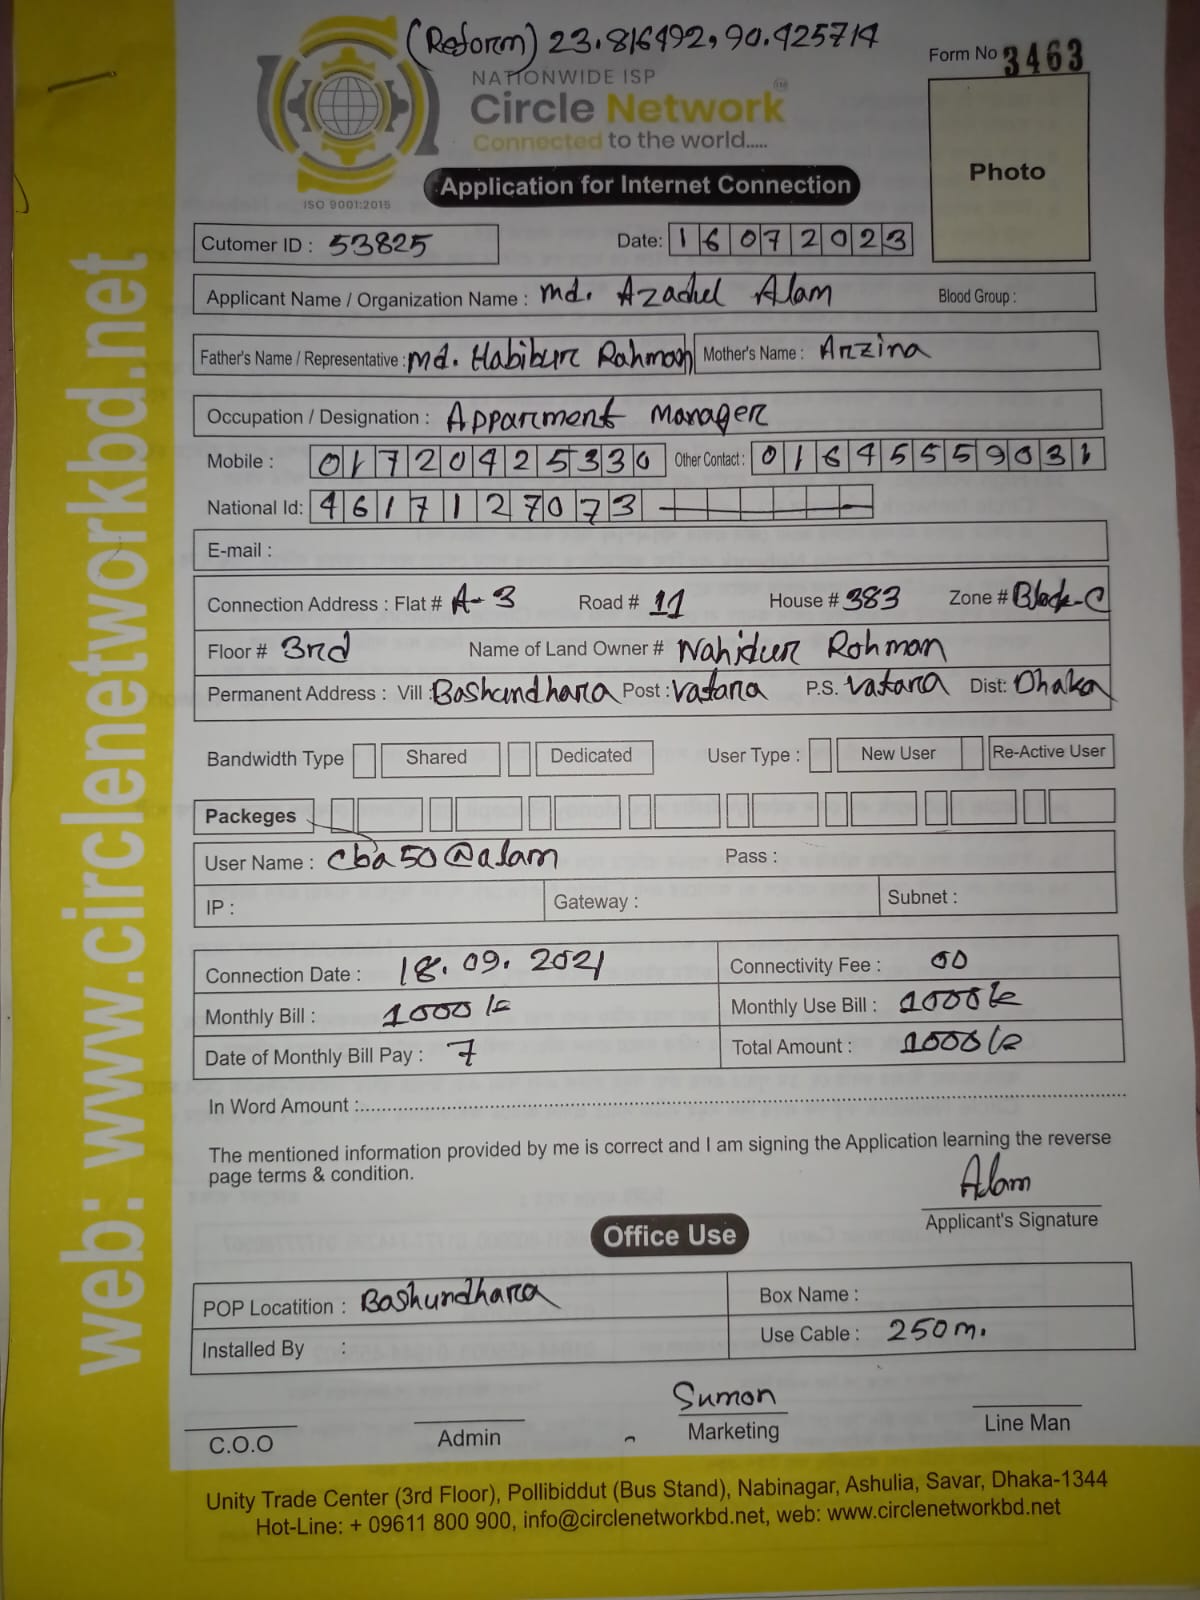 (Reform) 23.816492, 90.425714
NATIONWIDE ISP
Circle Network
Connected to the world.....
ISO 9001:2015
Form No 3463
Photo
Application for Internet Connection
Cutomer ID : 53825
Date: 16072023
Applicant Name / Organization Name : Md. Azadul Alam Blood Group :
Father's Name / Representative : Md. Habibur Rahman Mother's Name : Arzina
Occupation / Designation : Apparment Manager
Mobile : 01720425330 Other Contact : 01645559031
National Id: 4617127073
E-mail :
Connection Address : Flat # A-3 Road # 11 House # 383 Zone # Block-C
Floor # 3rd Name of Land Owner # Nahidur Rohman
Permanent Address : Vill : Bashundhara Post : Vatara P.S. Vatara Dist: Dhaka
Bandwidth Type Shared Dedicated User Type : New User Re-Active User
Packeges
User Name : cba50@alam Pass :
IP : Gateway : Subnet :
Connection Date : 18.09.2021 Connectivity Fee : 00
Monthly Bill : 1000/= Monthly Use Bill : 1000/=
Date of Monthly Bill Pay : 7 Total Amount : 1000/=
In Word Amount :
The mentioned information provided by me is correct and I am signing the Application learning the reverse
page terms & condition.
Alam
Applicant's Signature
Office Use
POP Locatition : Bashundhara Box Name :
Installed By : Use Cable : 250m.
Sumon
C.O.O Admin Marketing Line Man
Unity Trade Center (3rd Floor), Pollibiddut (Bus Stand), Nabinagar, Ashulia, Savar, Dhaka-1344
Hot-Line: + 09611 800 900, info@circlenetworkbd.net, web: www.circlenetworkbd.net
web: www.circlenetworkbd.net